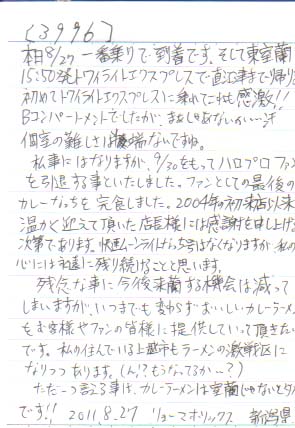 [3996]
本日8/27 一番乗りで到着です。そして東室蘭
15:50発トワイライトエクスプレスで直江津まで帰ります
初めてトワイライトエクスプレスに乗れてこれも感激!!
Bコンパートメントでしたが、
個室の難しさは半端ないですね。
私事にはなりますが、9/30をもってハロプロファン
を引退する事といたしました。ファンとしての最後の
カレーなっちを完食しました。2004年の初来店以来
温かく迎えて頂いた店長様には感謝を申し上げる
次第であります。快速ムーンライトなっち号はなくなりますが、私の
心には永遠に残り続けることと思います。
残念な事に今後来蘭する機会は減って
しまいますが、いつまでも変わらずおいしいカレーラーメン
をお客様やファンの皆様に提供していって頂きたい
です。私の住んでいる上越市もラーメンの激戦区に
なりつつあります。(ん!?もうなってるか…?)
ただ一つ言える事は、カレーラーメンは室蘭じゃないと
です!! 2011.8.27 リョーマホリックス 新潟県